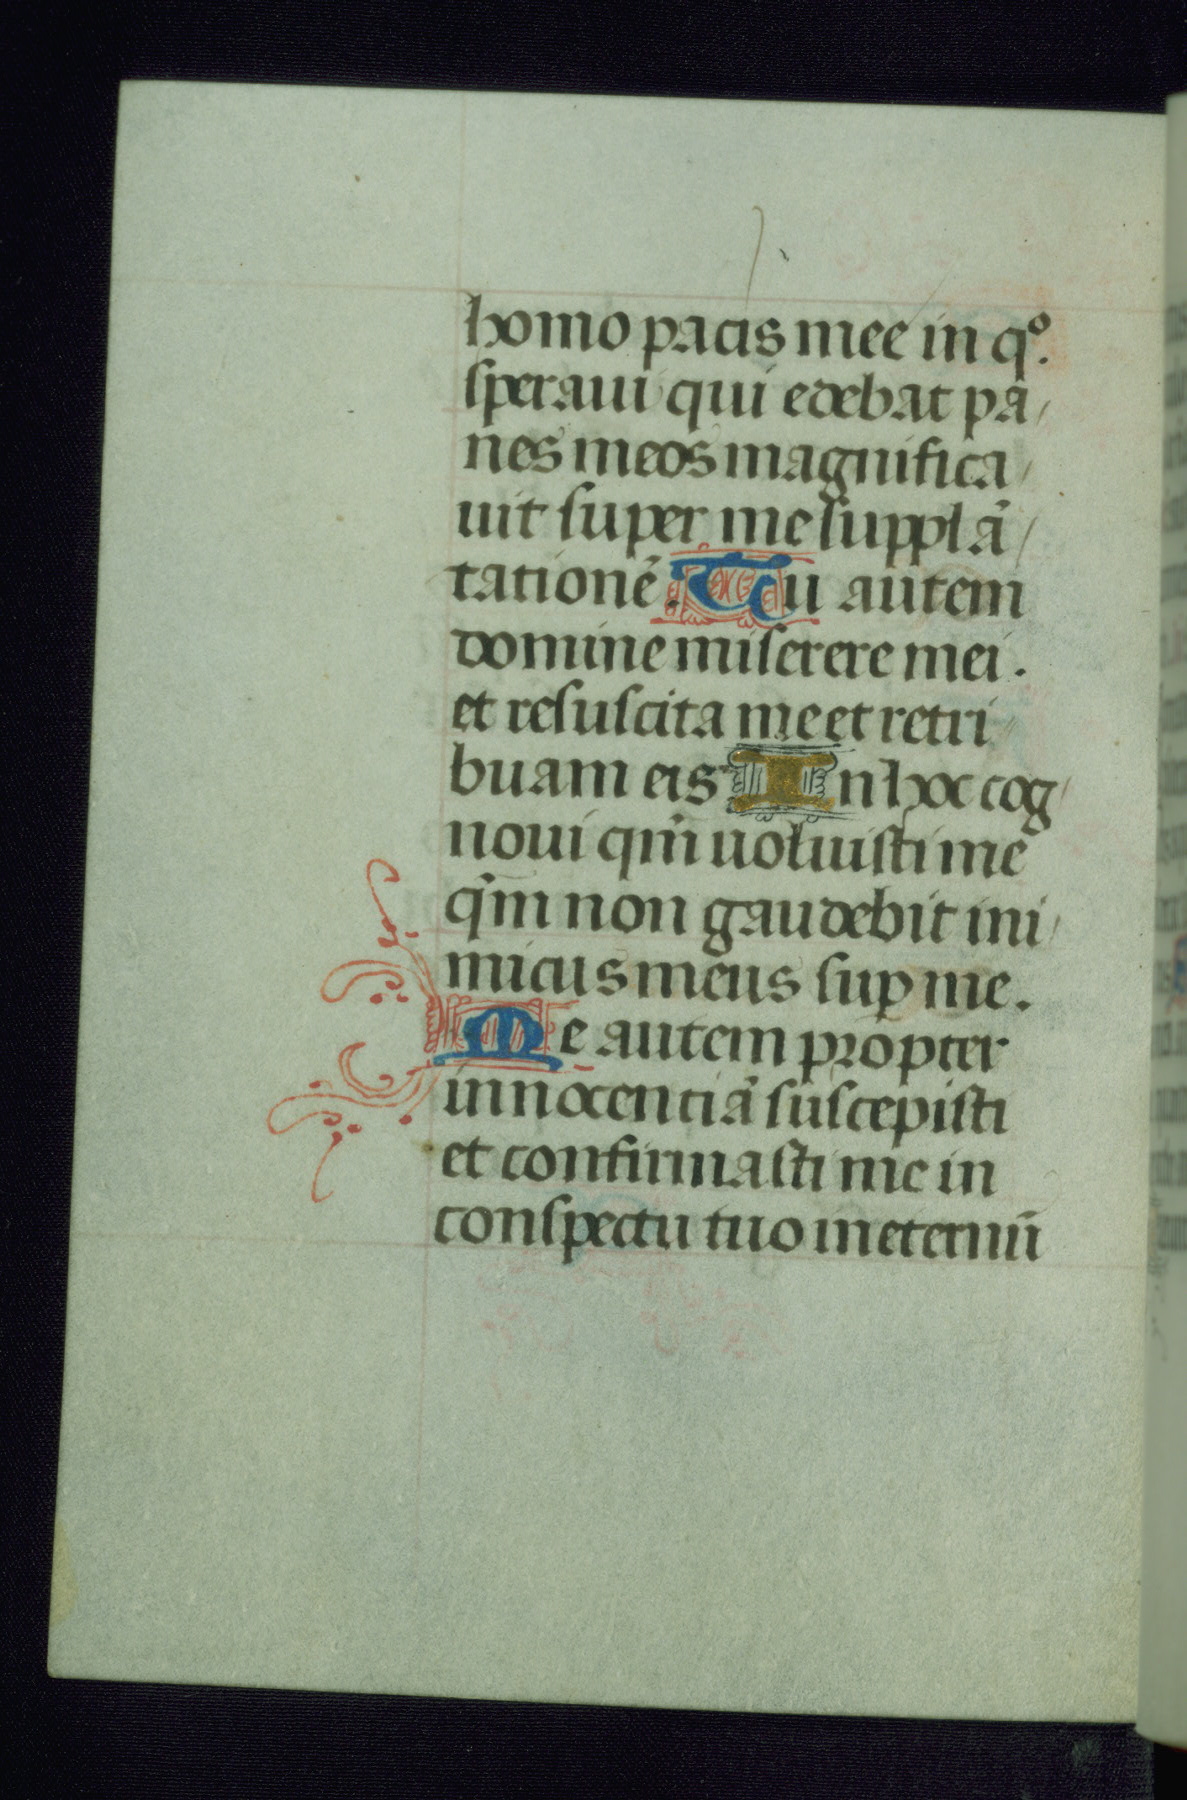 homo pacis mee in qͦ.
speraui qui edebat pa/
nes meos magnifica/
uit super me supplā/
tationē. Tu autem
domine miserere mei.
et resuscita me et retri/
buam eis In hoc cog/
noui qm̄ uoluisti me
qm̄ non gaudebit ini/
micus meus sup me.
Me autem propter
innocentiā suscepisti
et confirmasti me in
conspectu tuo in eternū